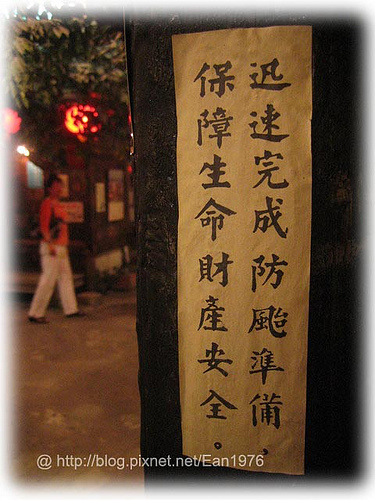 迅速完成防颱準備，
保障生命財產安全。
@ http://blog.pixnet.net/Ean1976